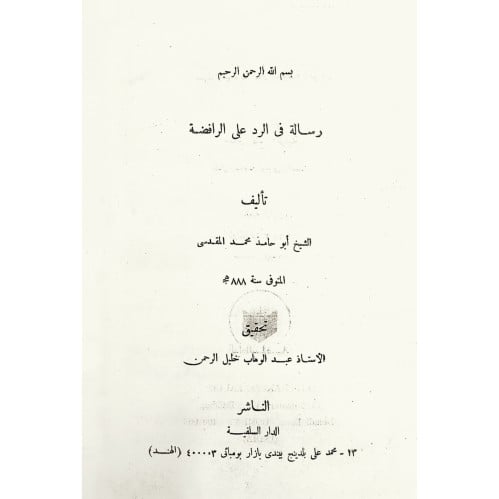 بسم الله الرحمن الرحيم
رسالة فى الرد على الرافضة
تأليف
الشيخ أبو حامد محمد المقدسى
المتوفى سنة ٨٨٨ هج
تحقيق
الأستاذ عبد الوهاب خليل الرحمن
الناشر
الدار السلفية
١٣ - محمد على بلدينج بهندى بازار بومبائى ٤٠٠٠٠٣ (الهند)